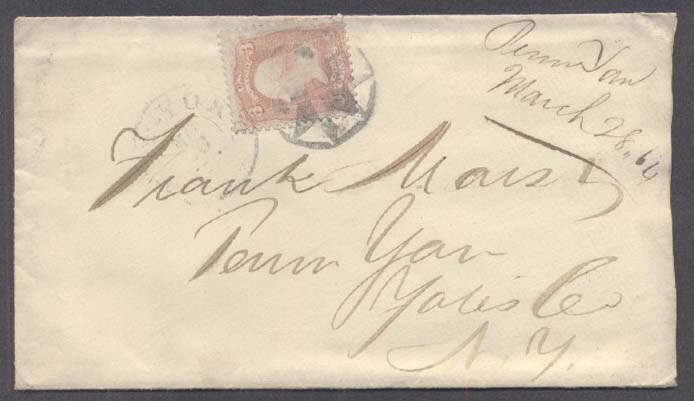 Penn Yan
March 28, 64
Frank Marsh
Penn Yan
Yates Co
N. Y.